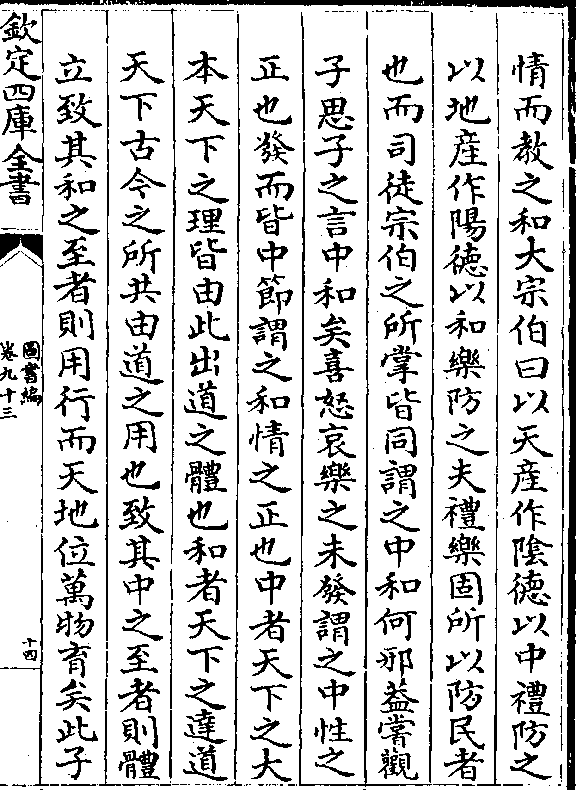 情而教之和大宗伯曰以天産作隂德以中禮防之
以地産作陽徳以和樂防之夫禮樂固所以防民者
也而司徒宗伯之所掌皆同謂之中和何邪葢嘗觀
子思子之言中和矣喜怒哀樂之未發謂之中性之
正也發而皆中節謂之和情之正也中者天下之大
本天下之理皆由此出道之體也和者天下之達道
天下古今之所共由道之用也致其中之至者則體
立致其和之至者則用行而天地位萬物育矣此子
欽定四庫全書
圖書編
卷九十三
十四